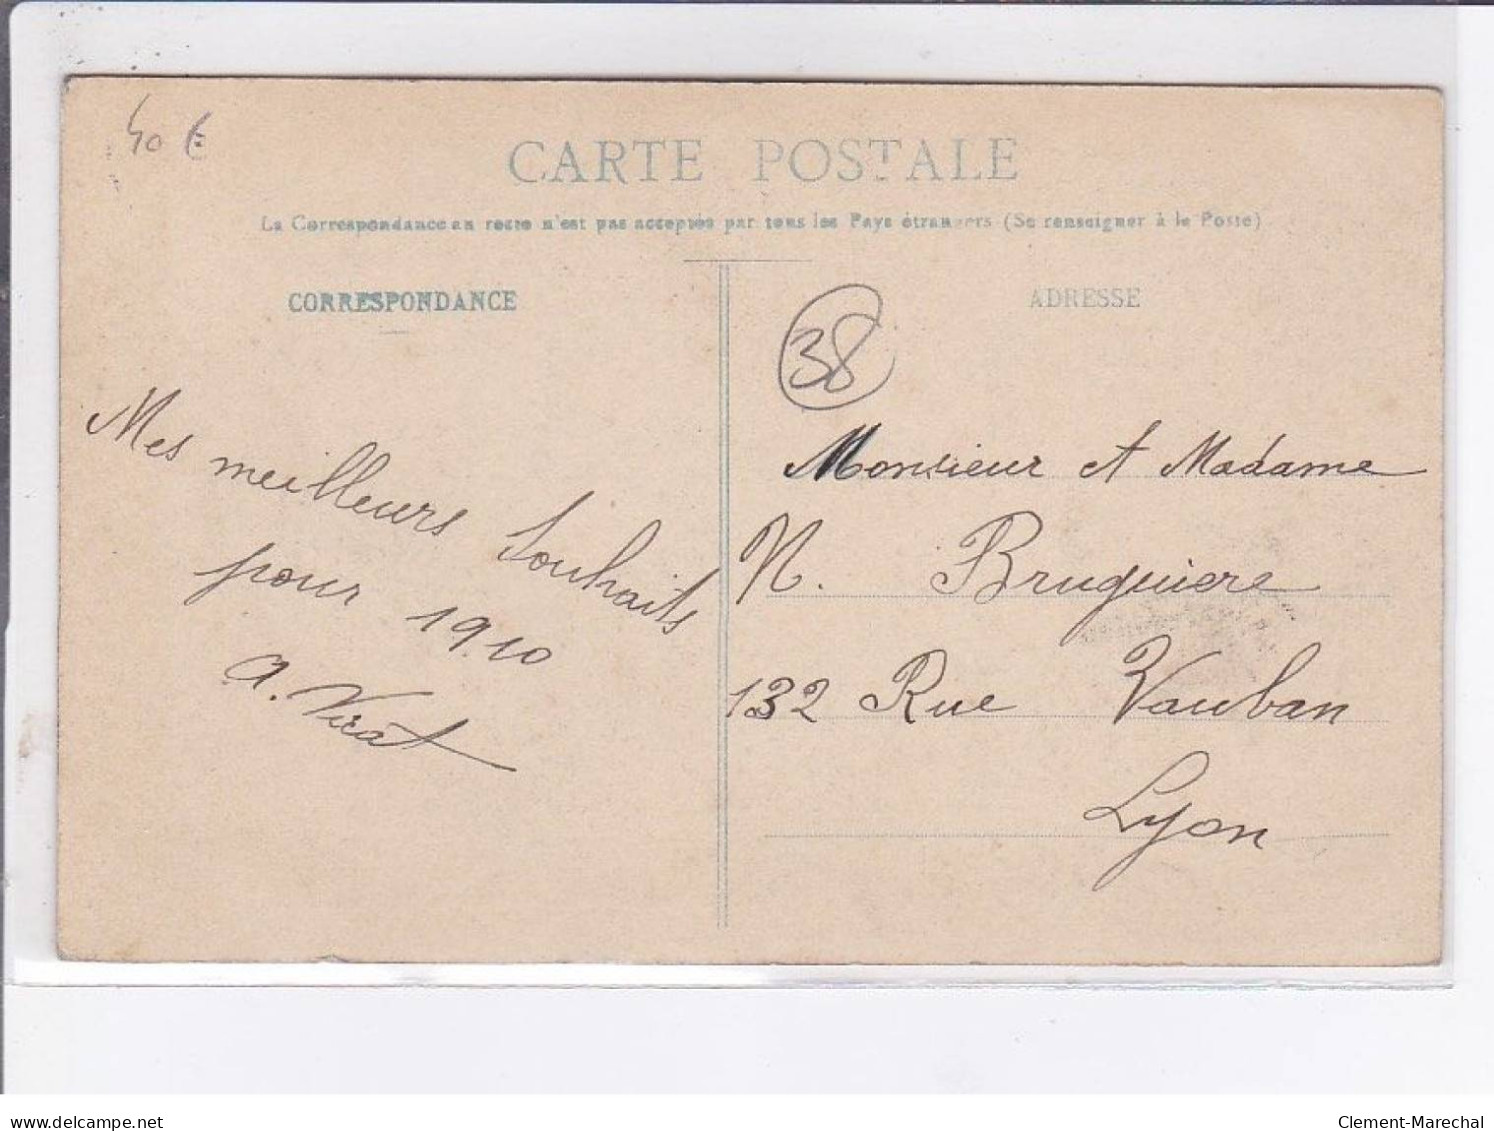 40 €
CARTE POSTALE
La Correspondance au recto n'est pas acceptée par tous les Pays étrangers (Se renseigner à la Poste)
CORRESPONDANCE
Mes meilleurs Souhaits
pour 1910
A. Virat
ADRESSE
38
Monsieur et Madame
N. Bruguiere
132 Rue Vauban
Lyon
delcampe.net
Clement-Marechal